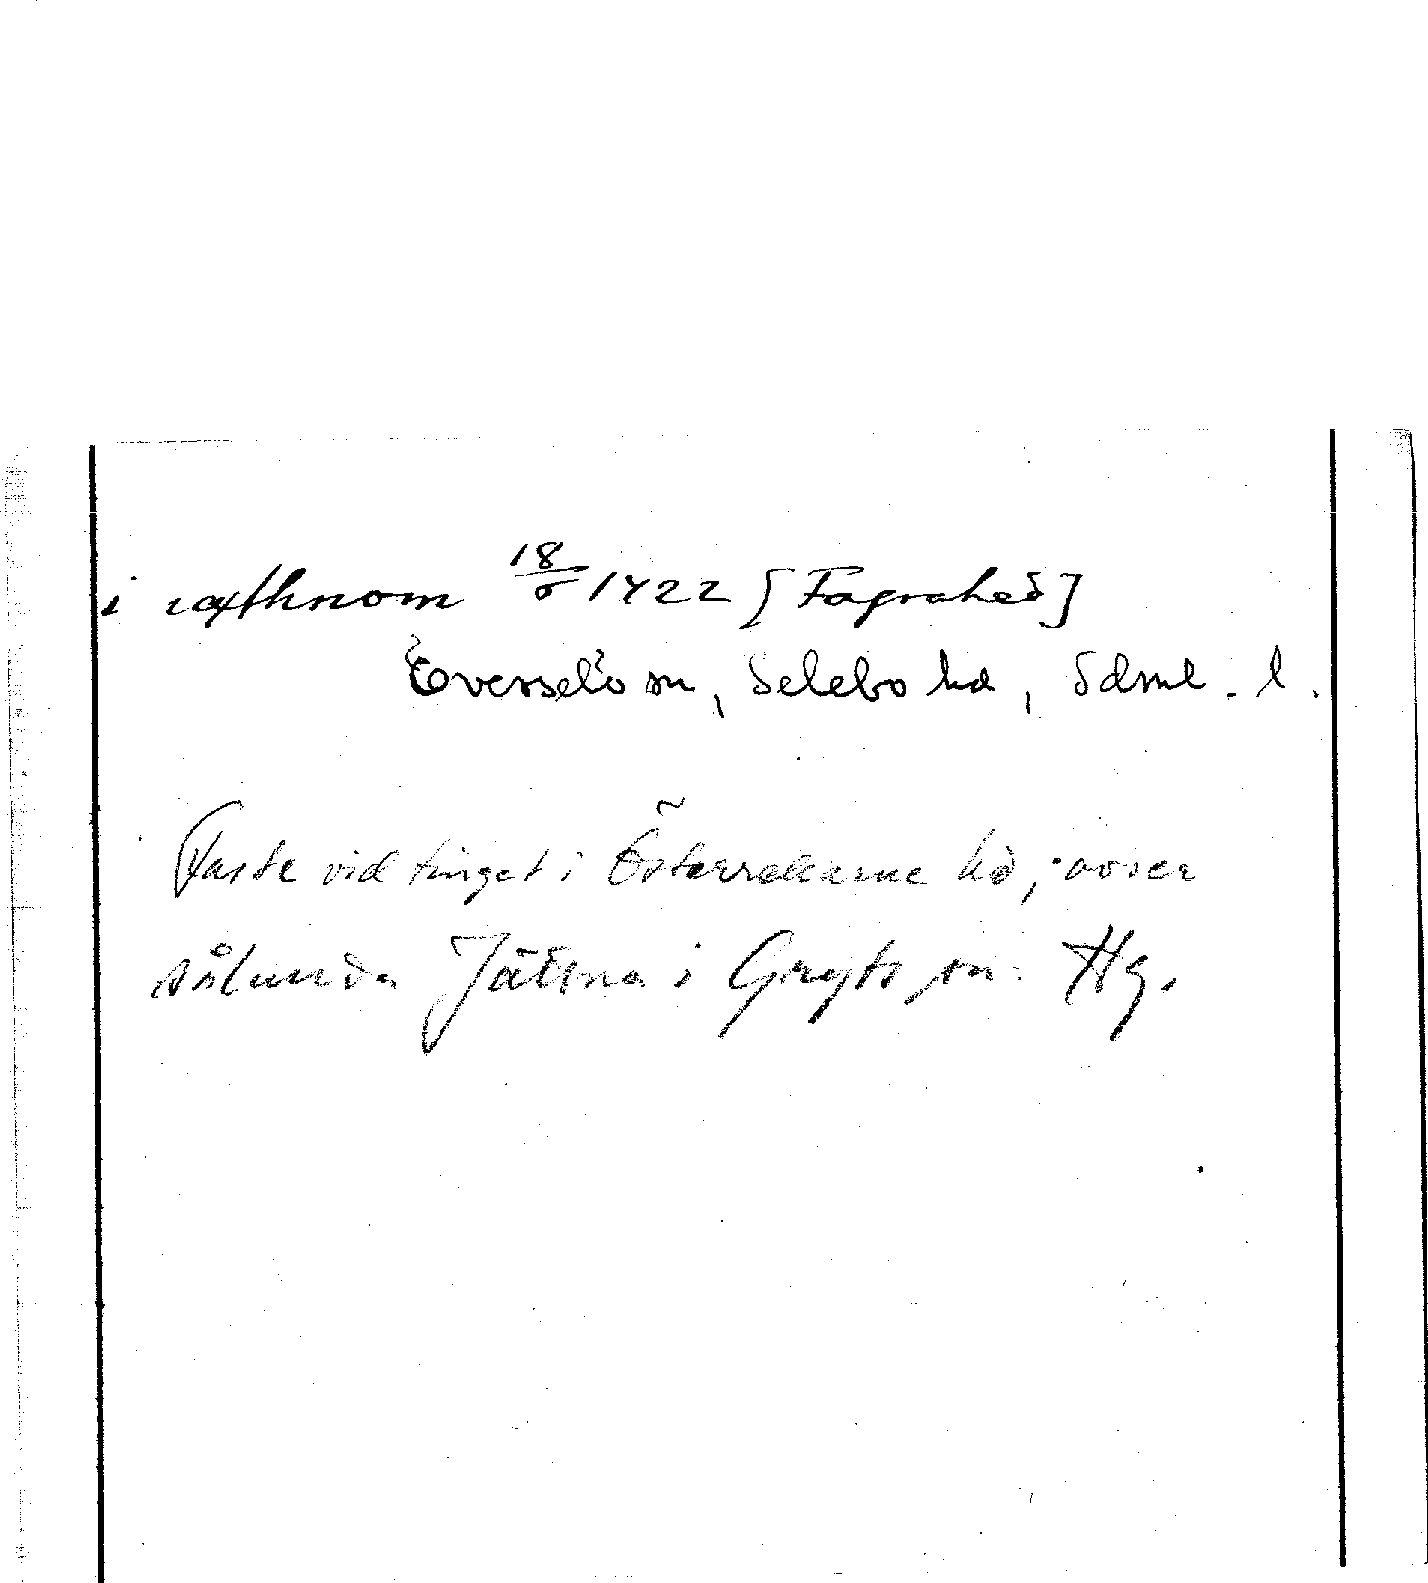 i iæthnom 18/6 1422 [Fagrahed]
Överselö sn, Selebo hd, Sdml. l.
Faste vid tinget i Österrekarne hd; avser
sålunda Jättna i Gryts sn. Hg.